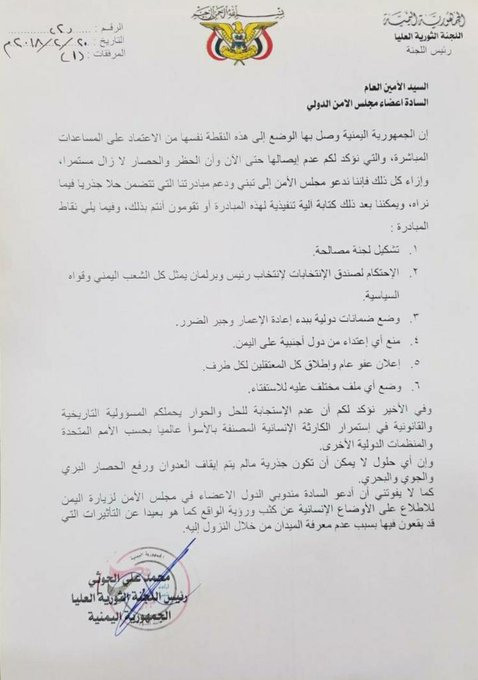 بسم الله الرحمن الرحيم
الجمهورية اليمنية
اللجنة الثورية العليا
رئيس اللجنة
الرقـم :
التاريخ : ٢٠١٨/٢/٢٠م
المرفقات : (١)
السيد الأمين العام
السادة اعضاء مجلس الامن الدولي
إن الجمهورية اليمنية وصل بها الوضع إلى هذه النقطة نفسها من الاعتماد على المساعدات
المباشرة، والتي نؤكد لكم عدم إيصالها حتى الآن وأن الحظر والحصار لا زال مستمرا،
وإزاء كل ذلك فإننا ندعو مجلس الأمن إلى تبني ودعم مبادرتنا التي تتضمن حلا جذريا فيما
نراه، ويمكننا بعد ذلك كتابة آلية تنفيذية لهذه المبادرة أو تقومون أنتم بذلك، وفيما يلي نقاط
المبادرة :
١. تشكيل لجنة مصالحة.
٢. الإحتكام لصندق الإنتخابات لإنتخاب رئيس وبرلمان يمثل كل الشعب اليمني وقواه
السياسية.
٣. وضع ضمانات دولية ببدء إعادة الاعمار وجبر الضرر.
٤. منع أي إعتداء من دول أجنبية على اليمن.
٥. إعلان عفو عام وإطلاق كل المعتقلين لكل طرف.
٦. وضع أي ملف مختلف عليه للاستفتاء.
وفي الأخير نؤكد لكم أن عدم الإستجابة للحل والحوار يحملكم المسؤولية التاريخية
والقانونية في إستمرار الكارثة الإنسانية المصنفة بالأسوأ عالميا بحسب الأمم المتحدة
والمنظمات الدولية الأخرى.
وإن أي حلول لا يمكن أن تكون جذرية مالم يتم إيقاف العدوان ورفع الحصار البري
والجوي والبحري.
كما لا يفوتني أن أدعو السادة مندوبي الدول الاعضاء في مجلس الأمن لزيارة اليمن
للاطلاع على الأوضاع الإنسانية عن كثب ورؤية الواقع كما هو بعيدا عن التأثيرات التي
قد يقعون فيها بسبب عدم معرفة الميدان من خلال النزول إليه.
محمد علي الحوثي
رئيس اللجنة الثورية العليا
الجمهورية اليمنية